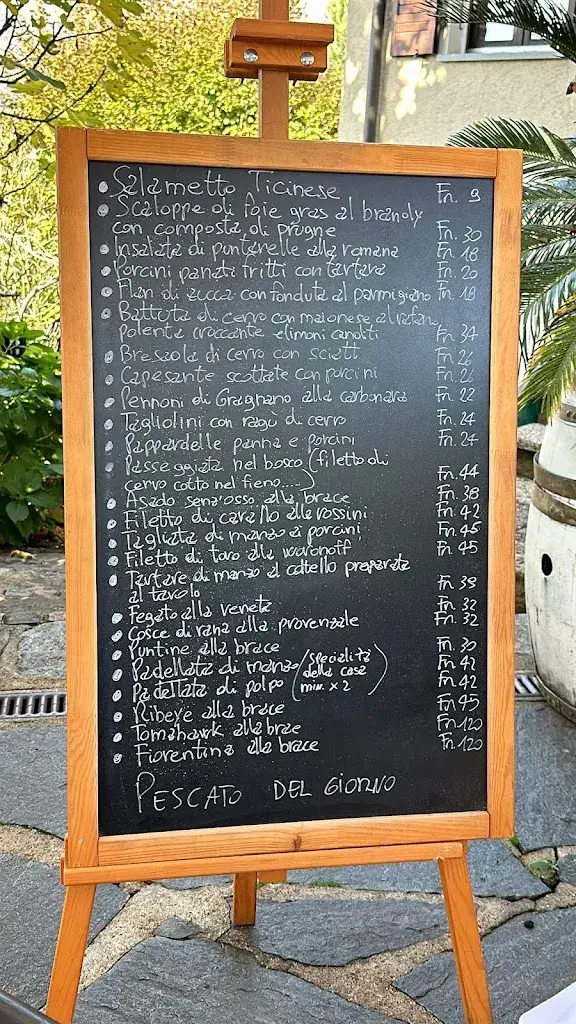 Salametto Ticinese Fr. 9
Scaloppe di foie gras al brandy
con composta di prugne Fr. 30
Insalata di puntarelle alla romana Fr. 18
Porcini panati fritti con tartara Fr. 20
Flan di zucca con fonduta al parmigiano Fr. 18
Battuta di cervo con maionese al rafano,
polenta croccante e limoni canditi Fr. 34
Bresaola di cervo con sciatt Fr. 26
Capesante scottate con porcini Fr. 26
Pennoni di Gragnano alla carbonara Fr. 22
Tagliolini con ragù di cervo Fr. 24
Pappardelle panna e porcini Fr. 24
Passeggiata nel bosco (filetto di
cervo cotto nel fieno....) Fr. 44
Asado senz'osso alla brace Fr. 38
Filetto di cavallo alla rossini Fr. 42
Tagliata di manzo ai porcini Fr. 45
Filetto di toro alla woronoff Fr. 45
Tartare di manzo al coltello preparata
al tavolo Fr. 39
Fegato alla veneta Fr. 32
Cosce di rana alla provenzale Fr. 32
Puntine alla brace Fr. 30
Padellata di manzo (specialità Fr. 42
della casa
Padellata di polpo min. x 2) Fr. 42
Ribeye alla brace Fr. 45
Tomahawk alla brae Fr. 120
Fiorentina alla brace Fr. 120
PESCATO DEL GIORNO